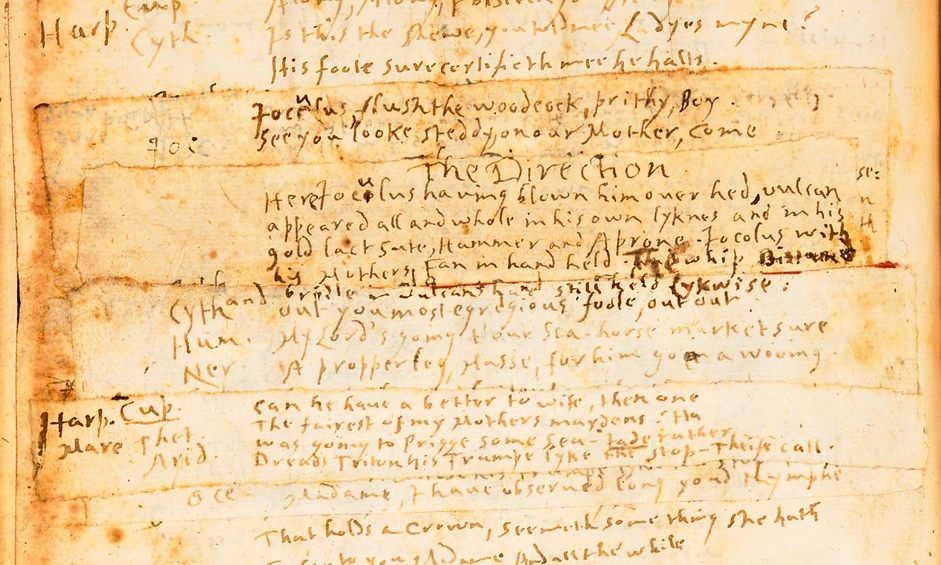 Harp. Cyth. Is this the Shewe, you tolde mee, Ladyes myne?
His foote sure certifieth mee he halts.
Jocculus, flush the woodcock, prithy, Boy.
Joc: See you looke steddy on oar Mother, Come
The Direction
Here Joculus having blown him over hed, vulcan
appeared all and whole in his own lyknes and in his
gold lact sute, Hammer and Aprone. Jocolus with
his Mothers Fan in hand held The whip
and bridle in vulcans hand still held lykwise:
Cyth out you most egregious foole, out out
Hum. My Lord's going t'our Sea-horse market sure
Ner A propper leg, Masse, for him go a wooing.
Harp. Cup. Can he have a better to wife, then one
Mare The fairest of my Mothers maydens? Ha
was going to Prigge some Sea-Jade rather
Arid. Dreads Triton his Trumpe lyke the Stop-Theife Call.
Oce Madame, I have observed long yond Nymphe
That holds a Crown, seemeth some thing she hath
to you, Madame And all the while